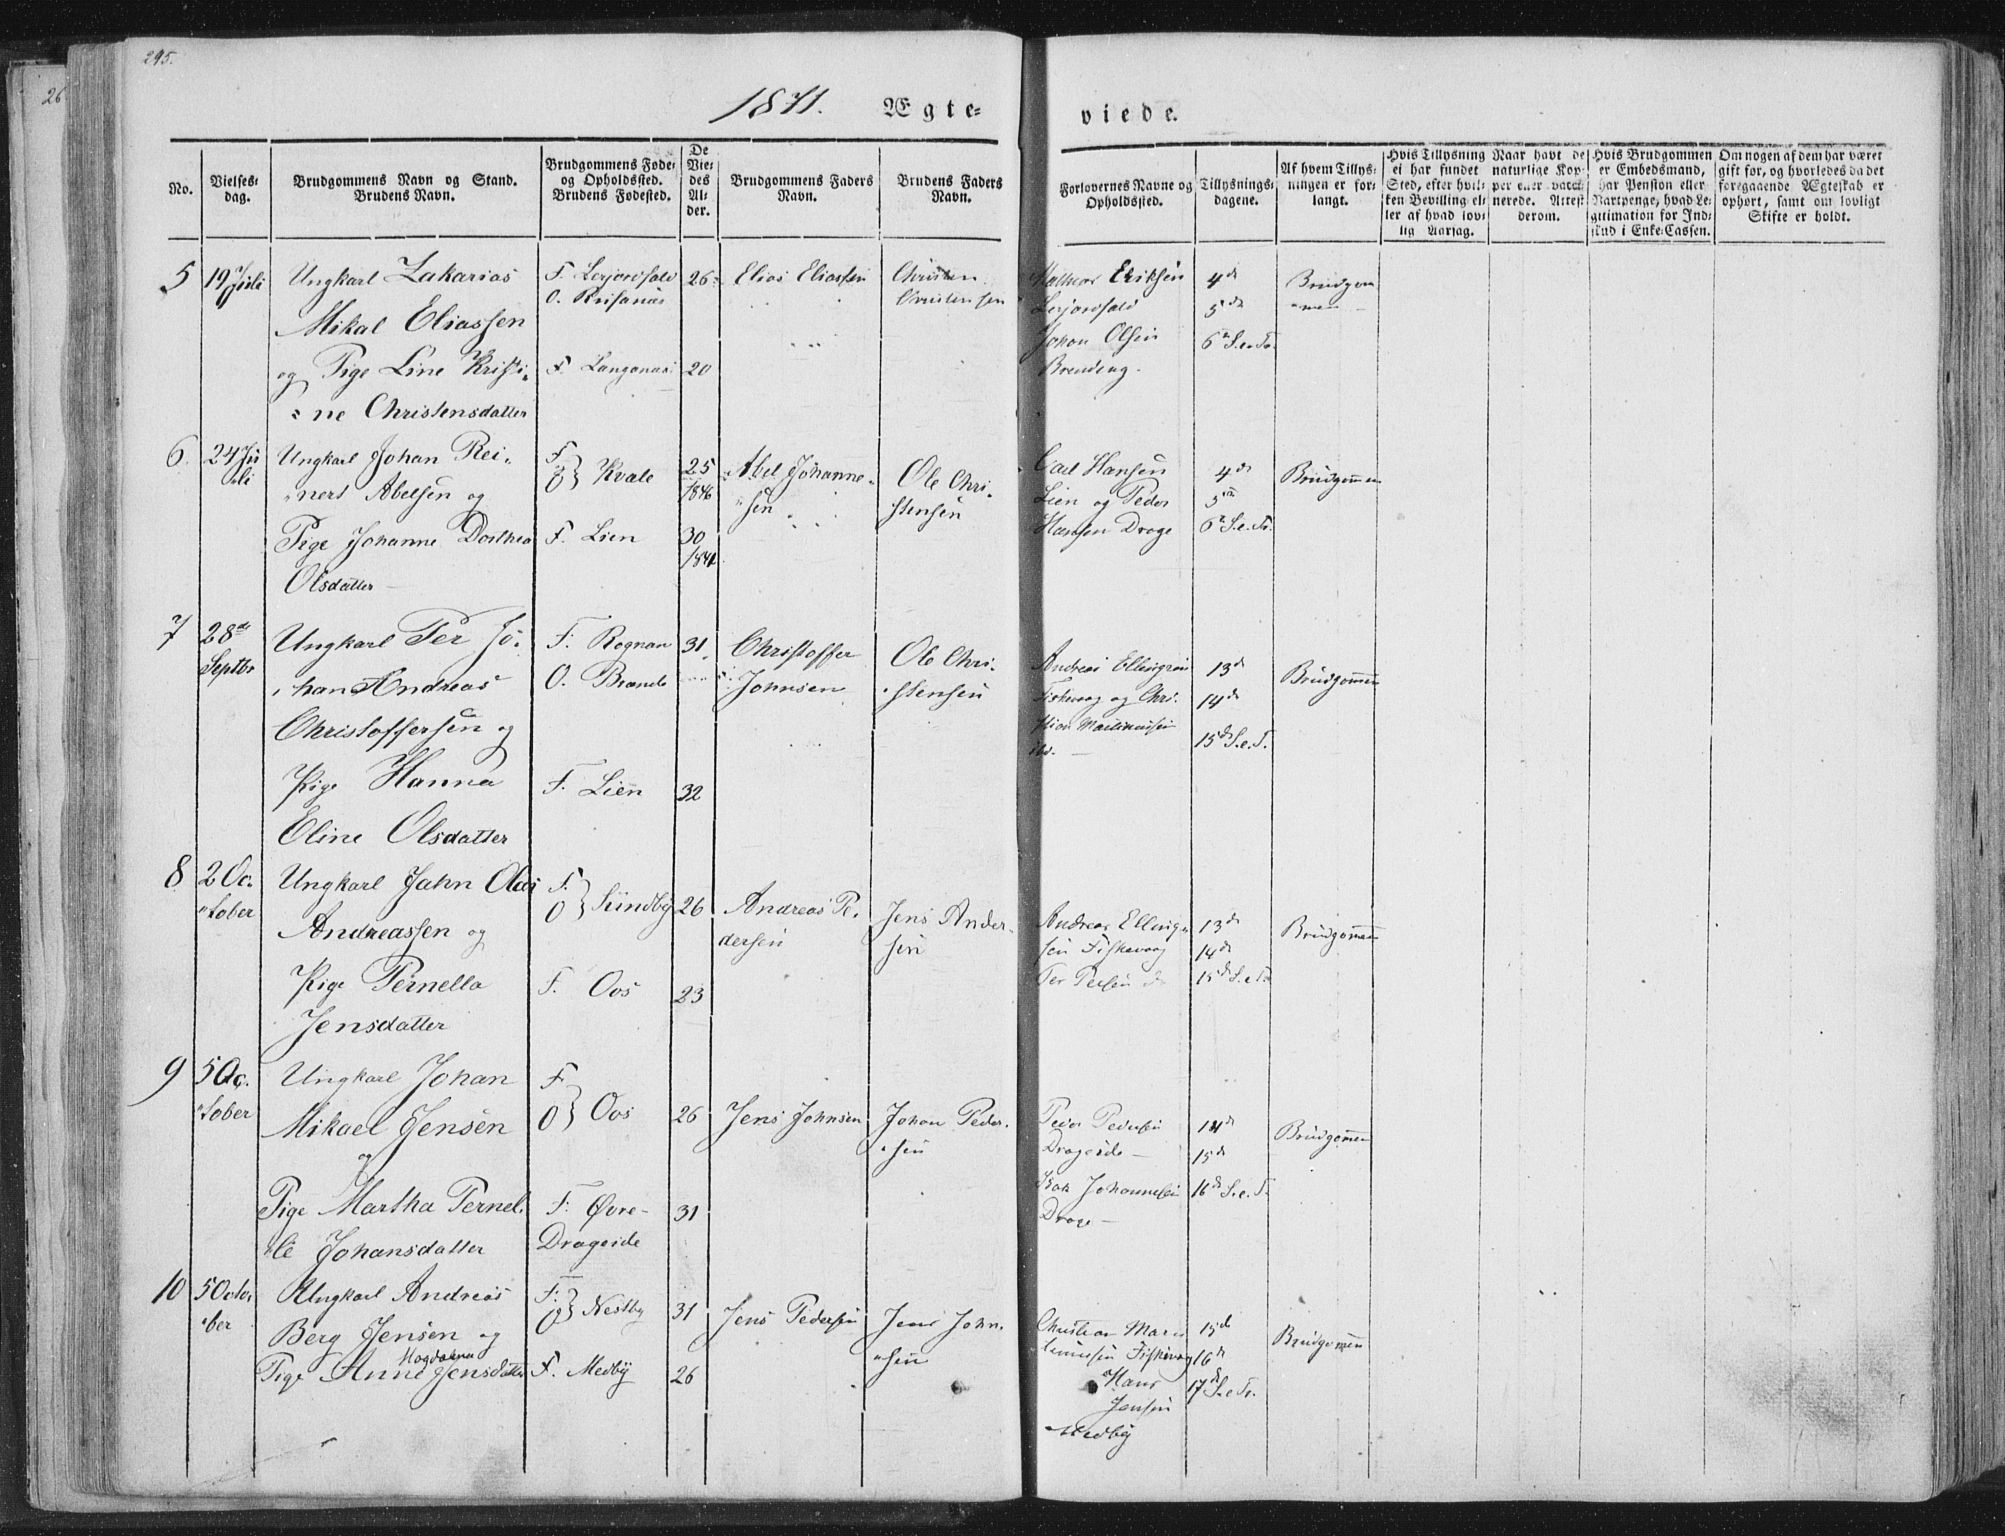 295.
26
1871. Ægte-
viede.
No.
Vielses-
dag.
Brudgommens Navn og Stand.
Brudens Navn.
Brudgommens Føde-
og Opholdssted.
Brudens Fødested.
De
Vie-
des
Al-
der.
Brudgommens Faders
Navn.
Brudens Faders
Navn.
Forlovernes Navne og
Opholdssted.
Tillysnings-
dagene.
Af hvem Tillys-
ningen er for-
langt.
Hvis Tillysning
ei har fundet
Sted, efter hvil-
ken Bevilling el-
ler af hvad lov-
lig Aarsag.
Naar havt de
naturlige Kop-
per eller vacci-
nerede. Attest
derom.
Hvis Brudgommen
er Embedsmand,
har Pension eller
Vartpenge, hvad Le-
gitimation for Ind-
skud i Enke-Cassen.
Om nogen af dem har været
gift før, og hvorledes da det
foregaaende Ægteskab er
ophørt, samt om lovligt
Skifte er holdt.
5
19 Juli
Ungkarl Zakarias
Mikal Eliassen
og Pige Line Kristi-
ne Christensdatter
F.
O.
F. Langanæs
26
20
Elias Eliassen
Christen
Christensen
Eriksen
Johan Olsen
4de
5de
6te S.e.Tr.
Brudgom
men
6.
24 Ju
li
Ungkarl Johan Rei-
nert Abelsen og
Pige Johanne Dorthea
Olsdatter
F
O } Kvale
F. Lien
25
1846
30
1841
Abel Johanne-
sen
Ole Chri-
stensen
Carl Hansen
Lien og Peder
Hansen Drage
4de
5te
6te S.e.Tr.
Brudgommen
7
28de
Septbr
Ungkarl Per Jo-
han Andreas
Christoffersen og
Pige Hanna
Eline Olsdatter
F. Rognan
O. Brænde
F. Lien
31
32
Christoffer
Johnsen
Ole Chri-
stensen
Andreas Ellingsen
Fiskevaag og Chri-
stian Martinussen
ibd.
13de
14de
15de S.e.T.
Brudgommen
8
2 Oc-
tober
Ungkarl Jahn Olai
Andreassen og
Pige Pernella
Jensdatter
F.
O } Sundby
F. Oos
26
23
Andreas Pe-
dersen
Jens Ander-
sen
Andreas Elling-
sen Fiskevaag
13de
14de
15de S.e.Tr
Brudgommen
9
5 Oc-
tober
Ungkarl Johan
Mikael Jensen
og
Pige Martha Pernel-
le Johansdatter
F
O } Oos
F. Øvre-
Drageide
26
31
Jens Johnsen
Johan Peder-
sen
Peder Pedersen
Drageide
Johannesen
Drage
14de
15de
16de S.e.T.
Brudgommen
10
5 Octo-
ber
Ungkarl Andreas
Berg Jensen og
Magdalena
Pige Anne Jensdatter
F.
O } Nestby
F. Medby
31
26
Jens Pedersen
Jens John-
sen
Christian Mar-
tinussen Fiskevaag
Hans
Jensen
Medby
15de
16de
17de S.e.Tr.
Brudgommen